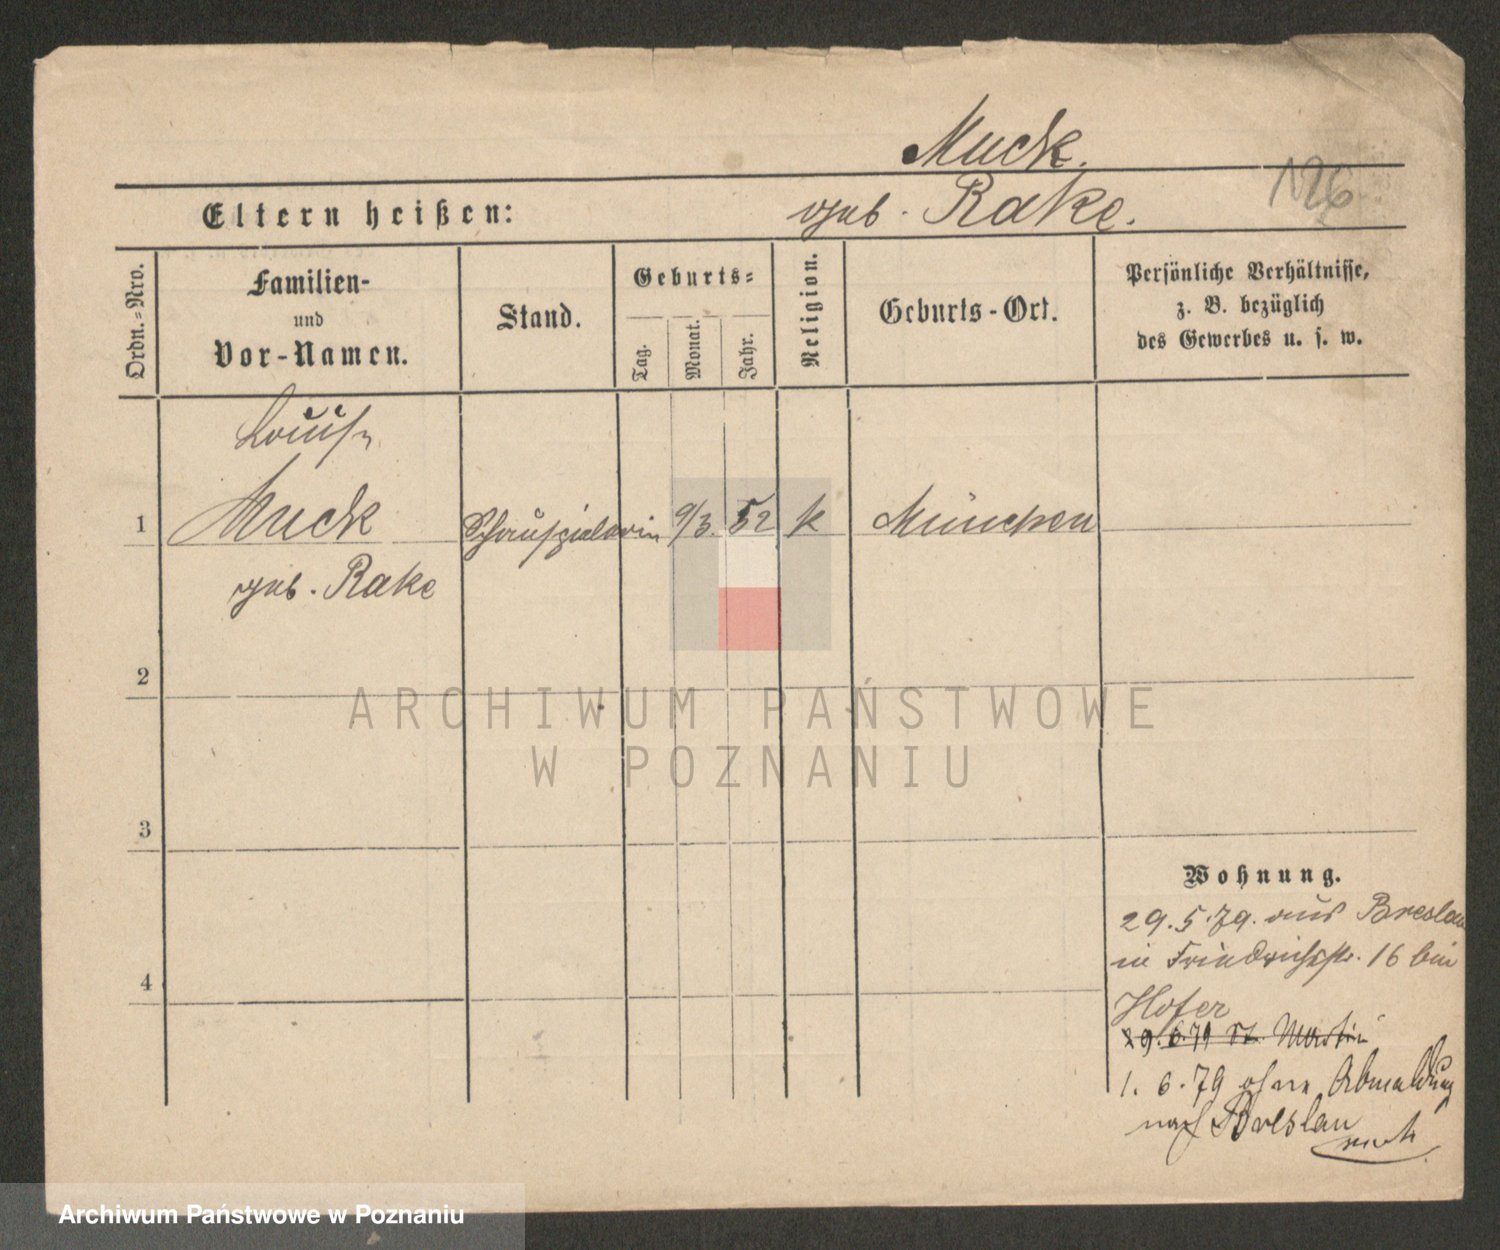 Muck.
126
Eltern heißen: geb. Rake.
Ordn.-Nro.
Familien-
und
Vor-Namen.
Stand.
Geburts-
Tag.
Monat.
Jahr.
Religion.
Geburts-Ort.
Persönliche Verhältnisse,
z. B. bezüglich
des Gewerbes u. s. w.
Louise
1 Muck Schauspielerin 9/3. 52 k München
geb. Rake
2
3
4
Wohnung.
29.5.79. aus Breslau
in Friedrichstr. 16 bei
Hofer
29.6.79 St. Martin
1. 6. 79 ohne Abmeldung
nach Breslau
ARCHIWUM PAŃSTWOWE
W POZNANIU
Archiwum Państwowe w Poznaniu